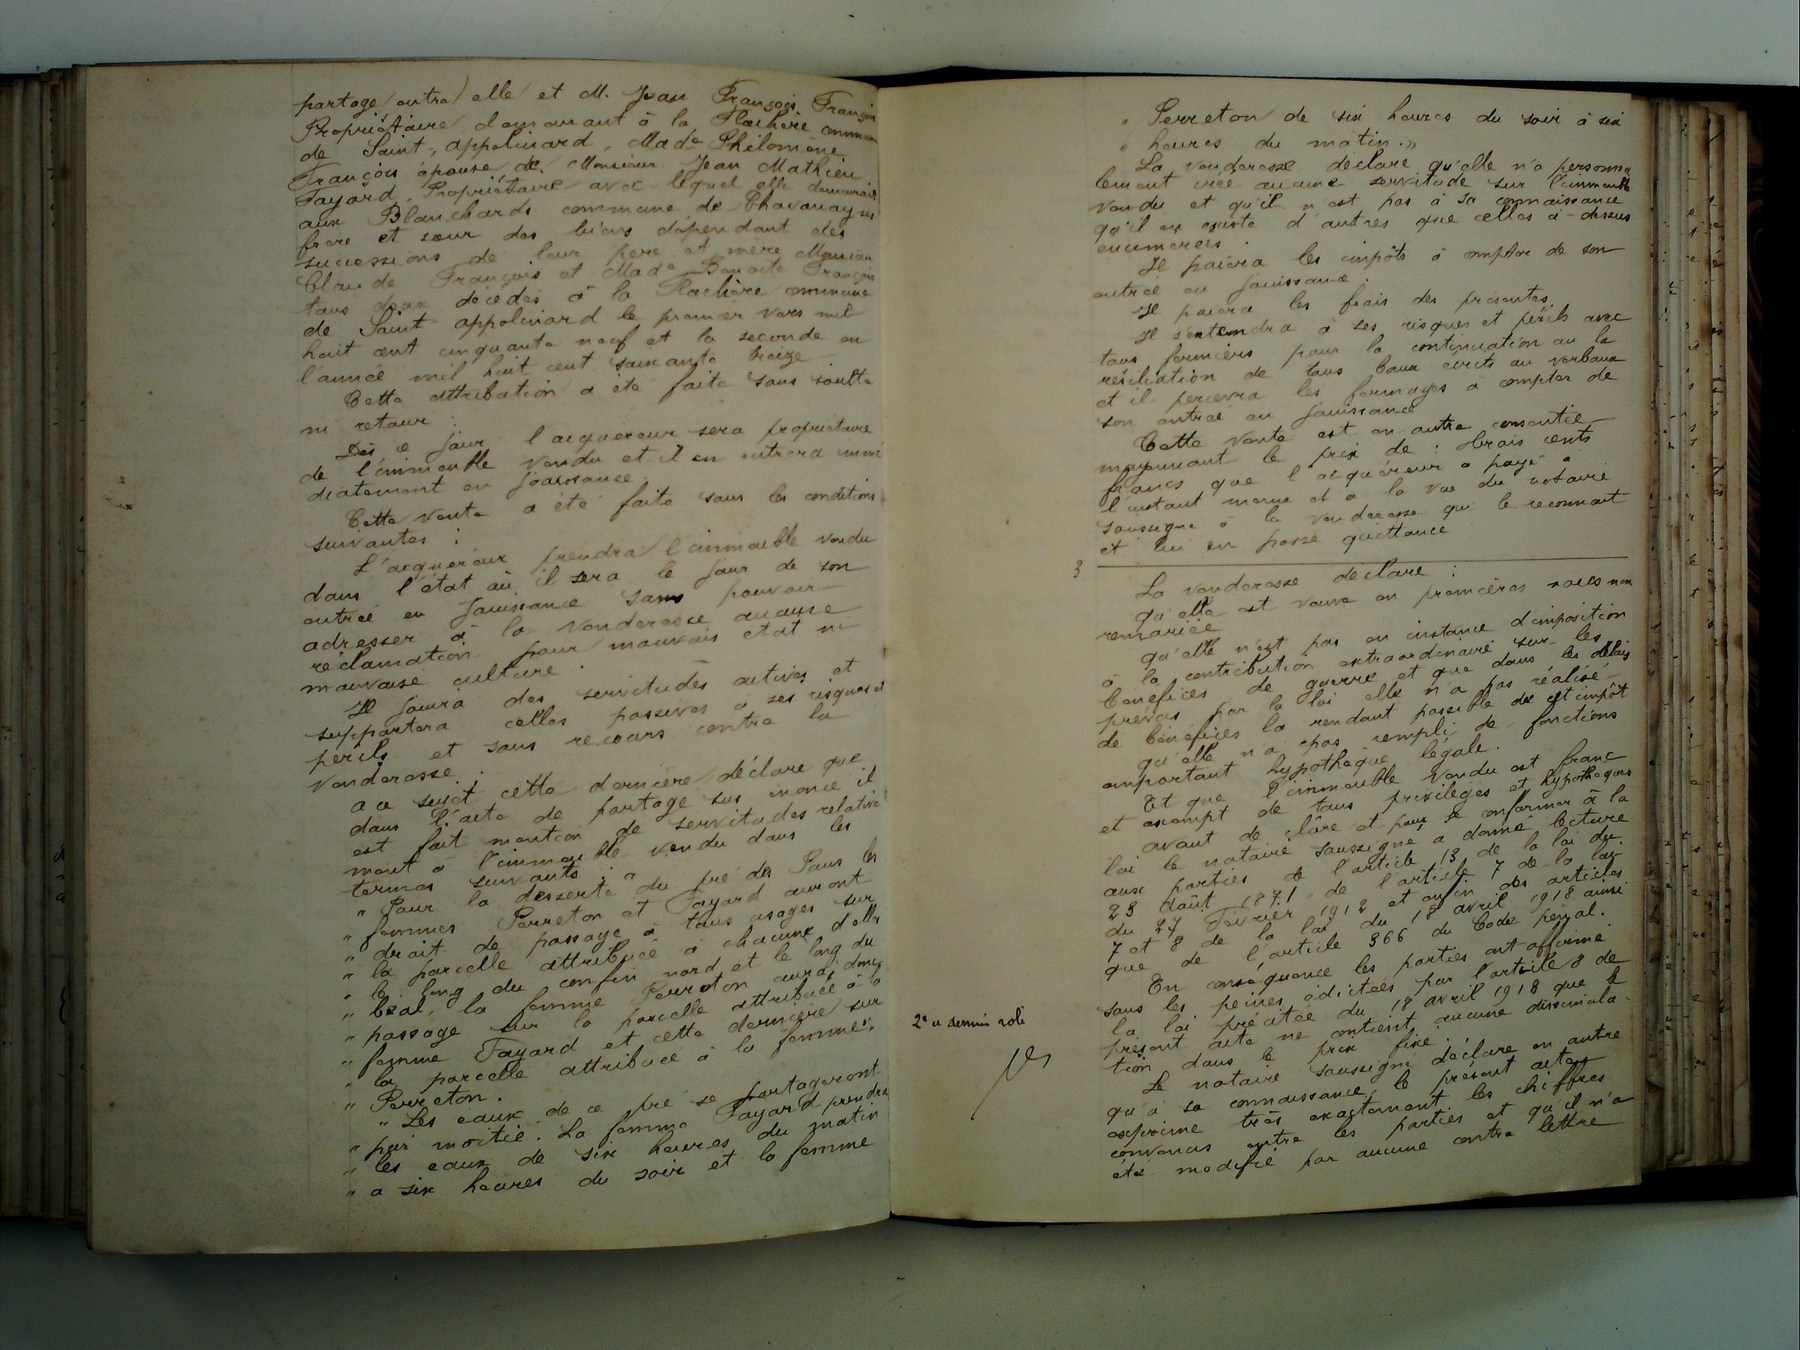 partage entre elle et M. Jean François François
Propriétaire demeurant à la Flachère commune
de Saint-appolinard, Made Philomène
François épouse de Monsieur Jean Mathieu
Fayard, Propriétaire avec lequel elle demeurait
aux Blanchards commune de Chavanay ses
frère et sœur des biens dépendant des
successions de leur père et mère Monsieur
Claude François et Made Benoite François
tous deux décédés à la Flachère commune
de Saint-appolinard le premier vers mil
huit cent cinquante neuf et la seconde en
l'année mil huit cent soixante treize
Cette attribution a été faite sans soulte
ni retour.
Dès ce jour l'acquereur sera propriétaire
de l'immeuble vendu et il en entrera immé
diatement en jouissance.
Cette vente a été faite sous les conditions
suivantes :
L'acquereur prendra l'immeuble vendu
dans l'état où il sera le jour de son
entrée en jouissance sans pouvoir
adresser à la venderesse aucune
réclamation pour mauvais état ni
mauvaise culture.
Il jouira des servitudes actives et
supportera celles passives à ses risques et
périls et sans recours contre la
venderesse.
a ce sujet cette dernière déclare que
dans l'acte de partage sus énoncé il
est fait mention de servitudes relative
ment à l'immeuble vendu dans les
termes suivants :
" Pour la desserte du pré des Sans les
" femmes Perreton et Fayard auront
" droit de passage à tous usages sur
" la parcelle attribuée à chacune d'elles
" le long du confin nord et le long du
" béal, la femme Perreton aura donc
" passage sur la parcelle attribuée à la
" femme Fayard et cette dernière sur
" la parcelle attribuée à la femme
" Perreton.
" Les eaux de ce pré se partageront
" par moitié. La femme Fayard prendra
" les eaux de six heures du matin
" a six heures du soir et la femme
" Perreton de six heures du soir à six
" heures du matin. "
La venderesse déclare qu'elle n'a personnel
lement créé aucune servitude sur l'immeuble
vendu et qu'il n'est pas à sa connaissance
qu'il en existe d'autres que celles ci-dessus
énumérées.
Il paiera les impôts à compter de son
entrée en jouissance.
Il paiera les frais des présentes.
Il s'entendra à ses risques et périls avec
tous fermiers pour la continuation ou la
résiliation de tous baux écrits ou verbaux
et il percevra les fermages à compter de
son entrée en jouissance
Cette vente est en outre consentie
moyennant le prix de : trois cents
francs que l'acquéreur a payé à
l'instant même et à la vue du notaire
soussigné à la venderesse qui le reconnait
et lui en passe quittance
3
La venderesse déclare :
qu'elle est veuve en premières noces non
remariée
qu'elle n'est pas en instance d'imposition
à la contribution extraordinaire sur les
bénéfices de guerre et que dans les délais
prévus par la loi elle n'a pas réalisé
de bénéfices la rendant passible de cet impôt
qu'elle n'a pas rempli de fonctions
emportant hypothèque légale.
Et que l'immeuble vendu est franc
et exempt de tous privilèges et hypothèques
avant de clore et pour se conformer à la
loi le notaire soussigné a donné lecture
aux parties de l'article 13 de la loi du
23 août 1871 de l'article 7 de la loi
du 27 Février 1912 et enfin des articles
7 et 8 de la loi du 18 avril 1918 ainsi
que de l'article 366 du Code pénal.
En conséquence les parties ont affirmé
sous les peines édictées par l'article 8 de
la loi précitée du 18 avril 1918 que le
présent acte ne contient aucune dissimula-
tion dans le prix fixé.
Le notaire soussigné déclare en outre
qu'à sa connaissance, le présent acte
exprime très exactement les chiffres
convenus entre les parties et qu'il n'a
été modifié par aucune contre lettre
2e et dernier rôle